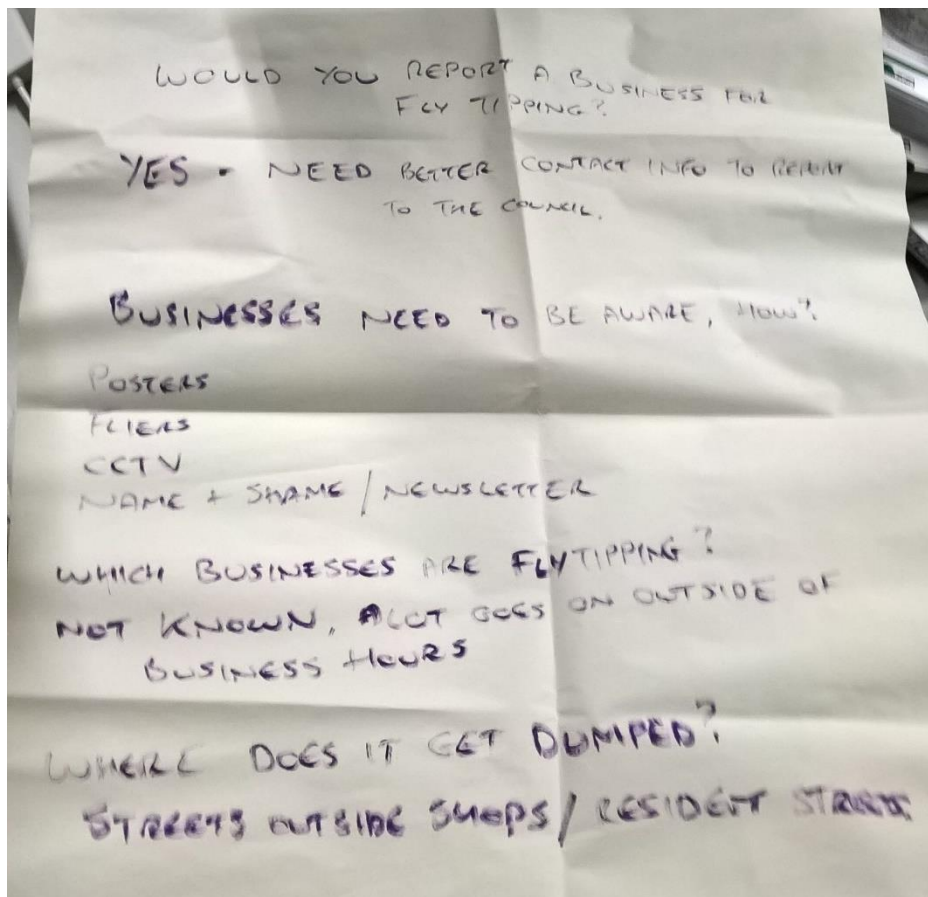 WOULD YOU REPORT A BUSINESS FOR
FLY TIPPING?
YES - NEED BETTER CONTACT INFO TO REPORT
TO THE COUNCIL.
BUSINESSES NEED TO BE AWARE, HOW?
POSTERS
FLIERS
CCTV
NAME + SHAME / NEWSLETTER
WHICH BUSINESSES ARE FLYTIPPING?
NOT KNOWN, ALOT GOES ON OUTSIDE OF
BUSINESS HOURS
WHERE DOES IT GET DUMPED?
STREETS OUTSIDE SHOPS / RESIDENT STREETS